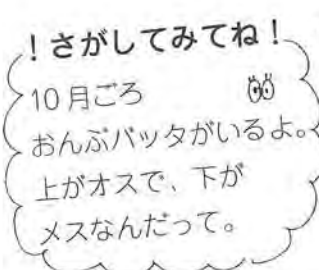 ！さがしてみてね！
10月ごろ
おんぶバッタがいるよ。
上がオスで、下が
メスなんだって。